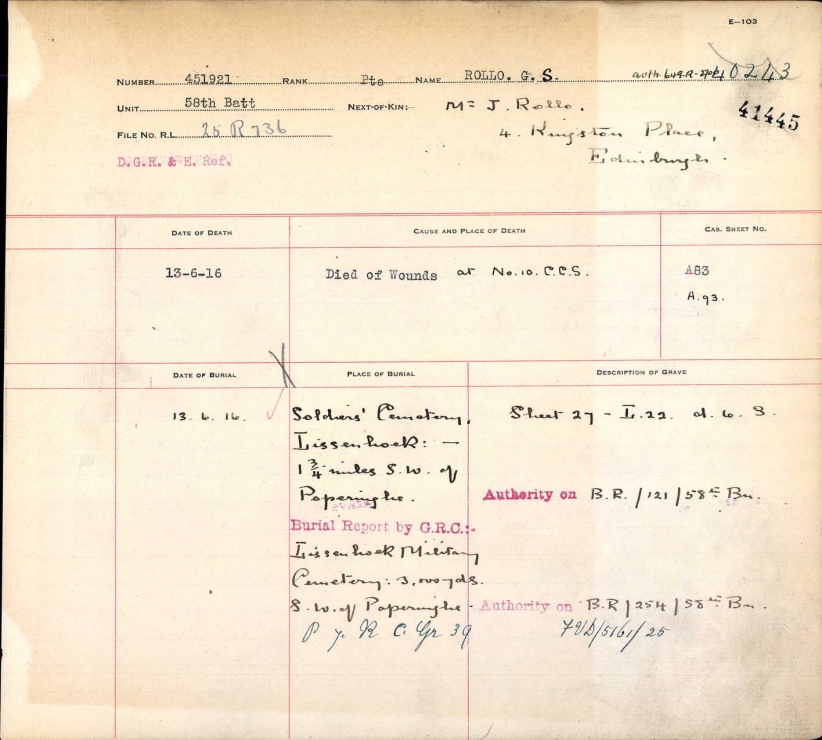 E—103
NUMBER 451921 RANK Pte NAME ROLLO. G. S. auth 649-R-
40243
UNIT 58th Batt NEXT-OF-KIN:- Mr J. Rollo,
41445
FILE NO. R.L. 25 R 736 4. Kingston Place,
D.G.R. & E. Ref. Edinburgh.
DATE OF DEATH CAUSE AND PLACE OF DEATH CAS. SHEET NO.
13-6-16 Died of Wounds at No. 10. C.C.S. A83
A.93.
DATE OF BURIAL PLACE OF BURIAL DESCRIPTION OF GRAVE
13. 6. 16. Soldiers' Cemetery, Sheet 27 - L.22. d. 6. 3.
Lissenhoek: —
1 3/4 miles S.W. of
Poperinghe. Authority on B.R./121/58th Bn.
Burial Report by G.R.C.:-
Lissenhoek Military
Cemetery: 3,000 yds.
S.W. of Poperinghe. Authority on B.R/254/58th Bn.
P 7. R C. Gr 39 /5161/25